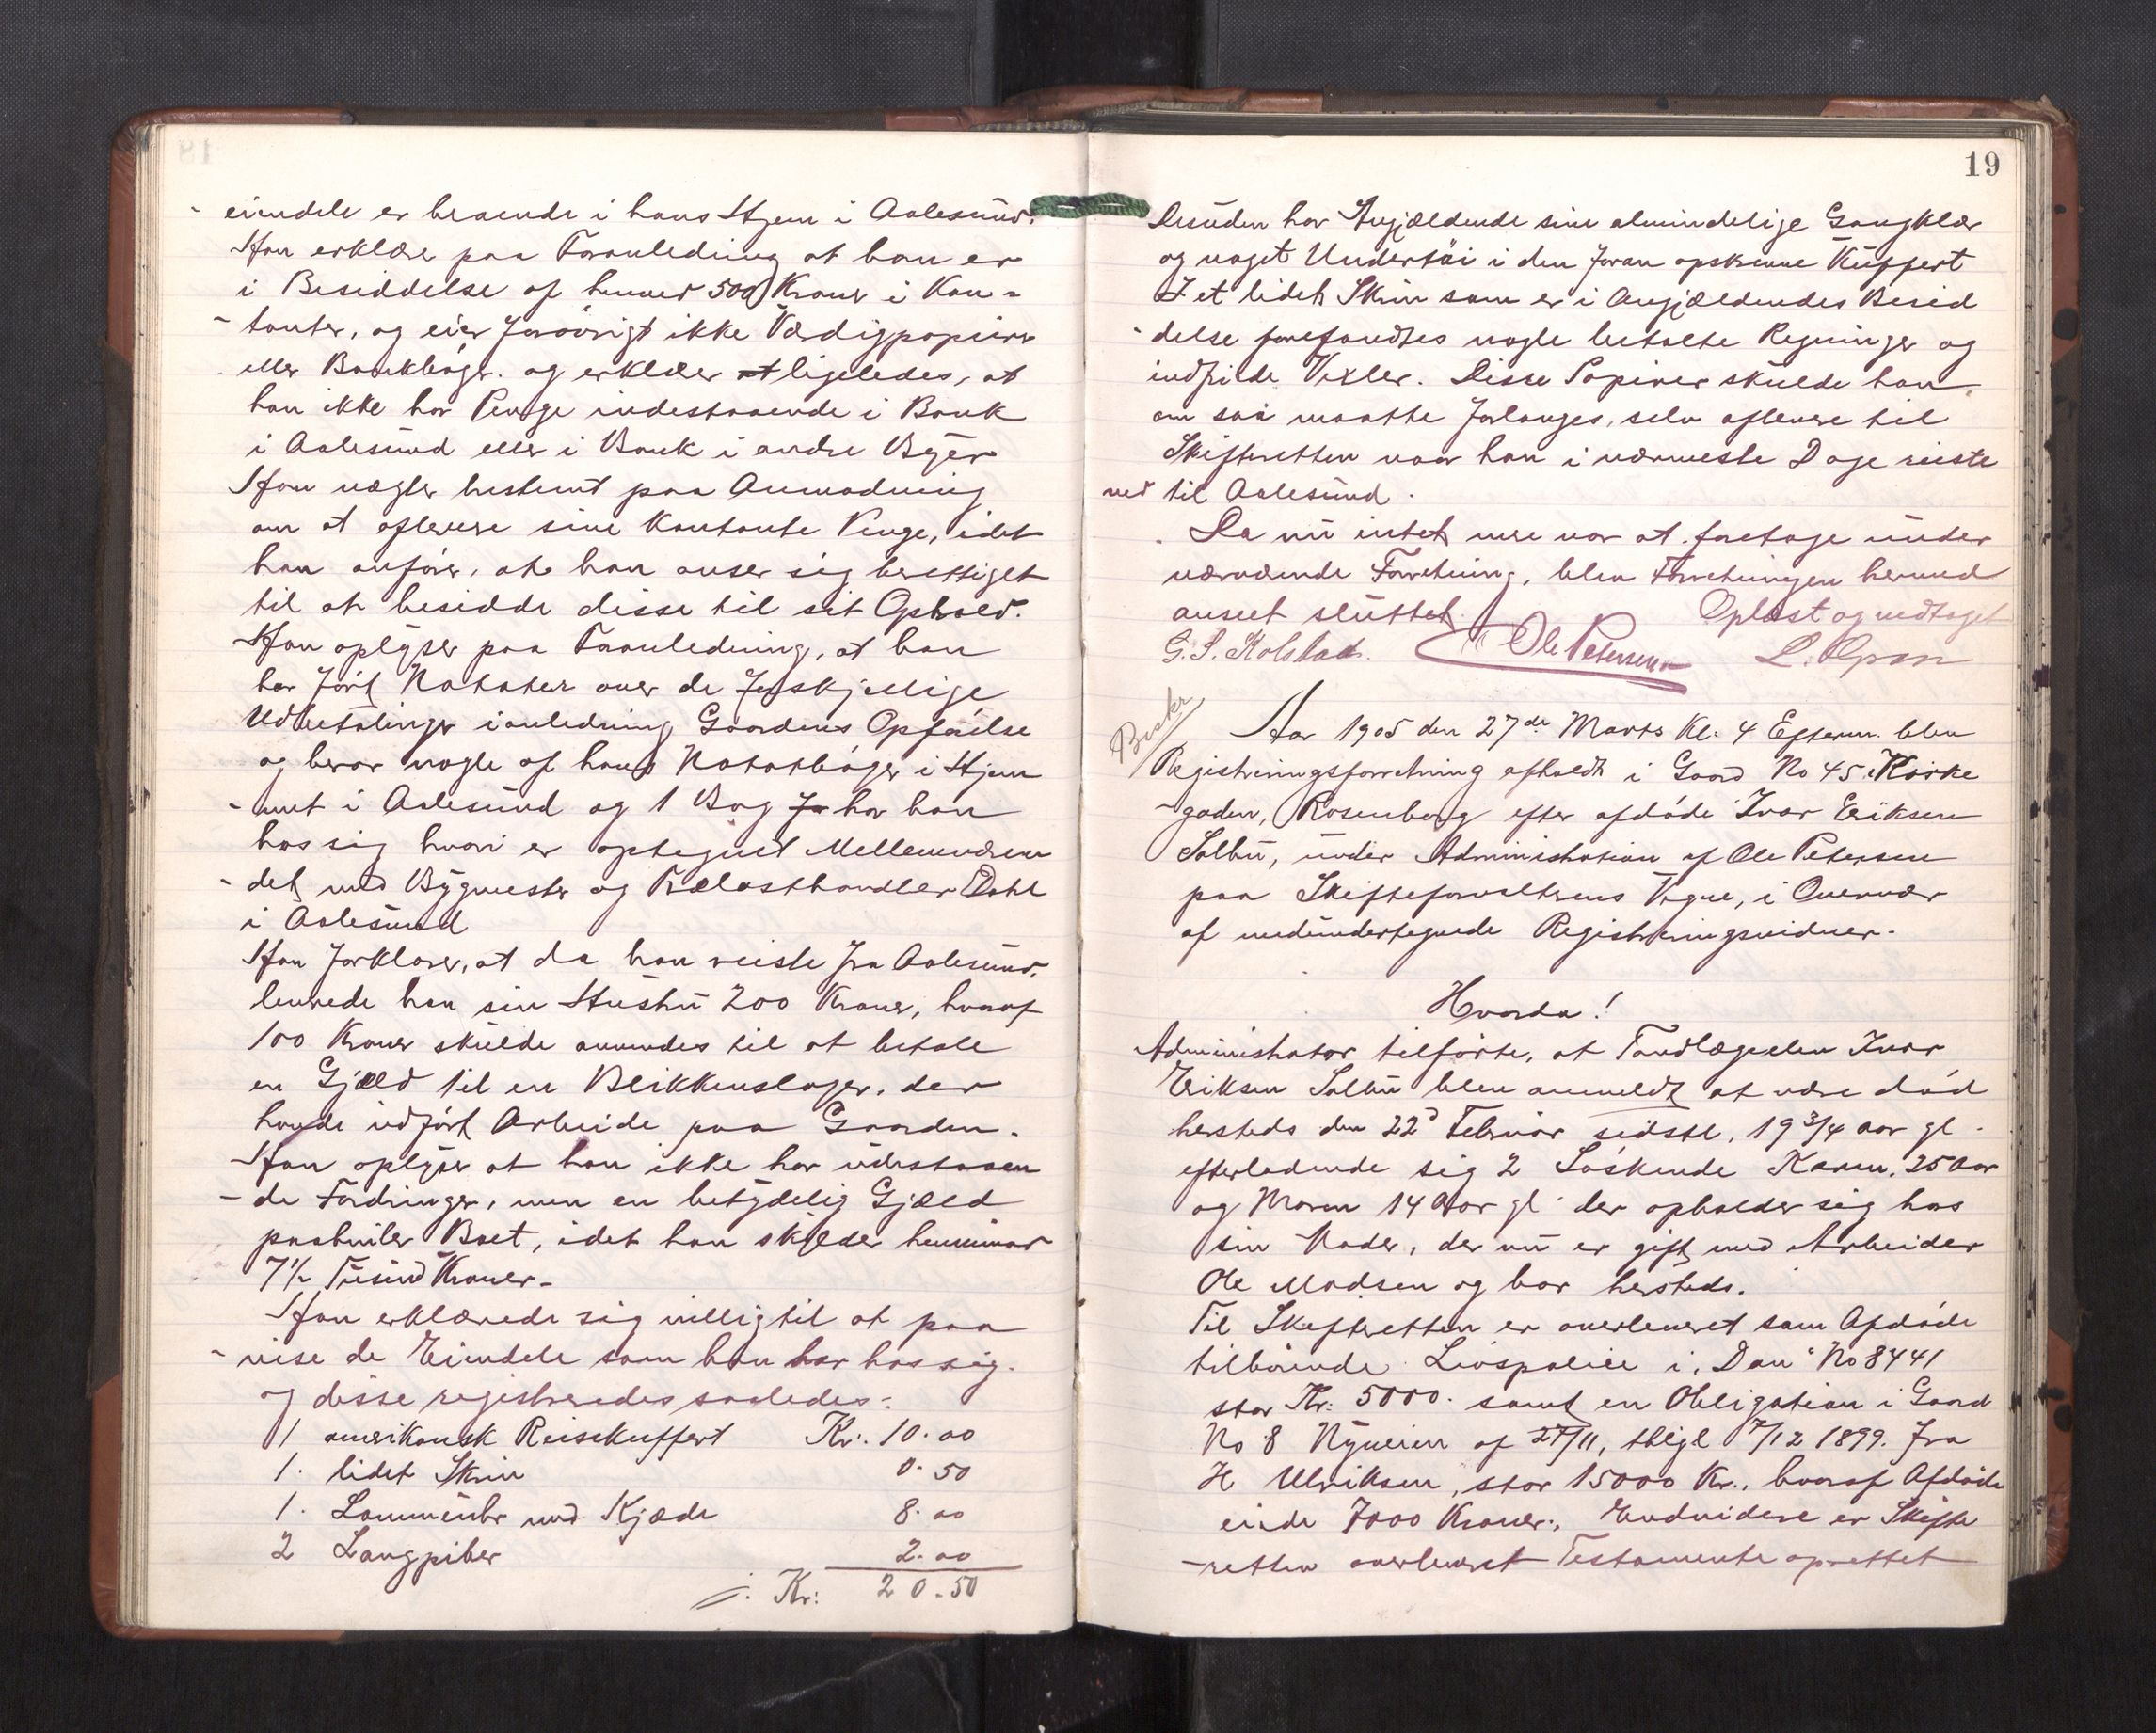 - eiendele er beroende i hans Hjem i Aalesund.
Han erklærer paa Foranledning at han er
i Besiddelse af henved 500 Kroner i Kon-
- tanter, og eier forøvrigt ikke Værdigpapirer
eller Bankbøger. og erklærer at ligeledes, at
han ikke har Penge indestaaende i Bank
i Aalesund eller i Bank i andre Byer
Han nægter bestemt paa Anmodning
om at aflevere sine Kontante Penge, idet
han anfører, at han anser sig berettiget
til at besidde disse til sit Ophold.
Han oplyser paa Foranledning, at han
har ført Notater over de forskjellige
Udbetalinger i anledning Gaardens Opførelse
og beror nogle af hans Notatbøger i Hjem
- met i Aalesund og 1 Bog har han
hos sig hvori er optegnet Mellemværen
- det med Bygmester og Trælasthandler Dahl
i Aalesund
Han forklarer, at da han reiste fra Aalesund,
leverede han sin Hustru 200 Kroner, hvoraf
100 Kroner skulde anvendes til at betale
en Gjæld til en Blikkenslager, der
havde udført Arbeide paa Gaarden.
Han oplyser at han ikke har udestaaen
- de Fordringer, men en betydelig Gjæld
paahviler Boet, idet han skylder henimod
7½ Tusind Kroner -
Han erklærede sig villig til at paa
- vise de Eiendele som han har hos sig.
og disse registreredes saaledes:
1 amerikansk Reisekuffert Kr. 10.00
1. lidet Skrin 0.50
1. Lommeuhr med Kjæde 8.00
2 Langpiber 2.00
Kr: 20.50
19
Desuden har Angjældende sine almindelige Gangklær
og noget Undertøi i den foran opskrevne Kuffert
I et lidet Skrin som er i Angjældendes Besid
- delse forefandtes nogle betalte Regninger og
indfriede Vexler. Disse Papirer skulde han,
om saa maatte forlanges, selv aflevere til
Skifteretten naar han i nærmeste Dage reiste
ned til Aalesund.
Da nu intet mere var at foretage under
nærværende Forretning, blev Forretningen hermed
anseet sluttet. Oplæst og vedtaget
G. S. Kolstad. Ole Petersen L. Opsan
Beskr
Aar 1905 den 27de Marts Kl. 4 Efterm. blev
Registreringsforretning afholdt i Gaard No 45 i Kirke
- gaden, Rosenborg efter afdøde Ivar Eriksen
Solbu, under Administration af Ole Petersen
paa Skifteforvalterens Vegne, i Overvær
af medundertegnede Registreringsvidner.
Hvorda!
Administrator tilførte, at Tandlægeelev Ivar
Eriksen Solbu blev anmeldt at være død
hersteds den 22d Februar sidstl. 19 3/4 aar gl.
efterladende sig 2 Søskende Karen, 25 Aar
og Maren 14 Aar gl. der opholder sig hos
sin Moder, der nu er gift med Arbeider
Ole Madsen og bor hersteds.
Til Skifteretten er overleveret som Afdøde
tilhørende Livspolice i „Dan“ No 8441
stor Kr: 5000. samt en Obligation i Gaard
No 8 Nyveien af 27/11, thlgl 7/12 1899. fra
H Ulriksen, stor 15000 Kr., hvoraf Afdøde
eiede 7000 Kroner. Endvidere er Skifte
- retten overleveret Testamente oprettet